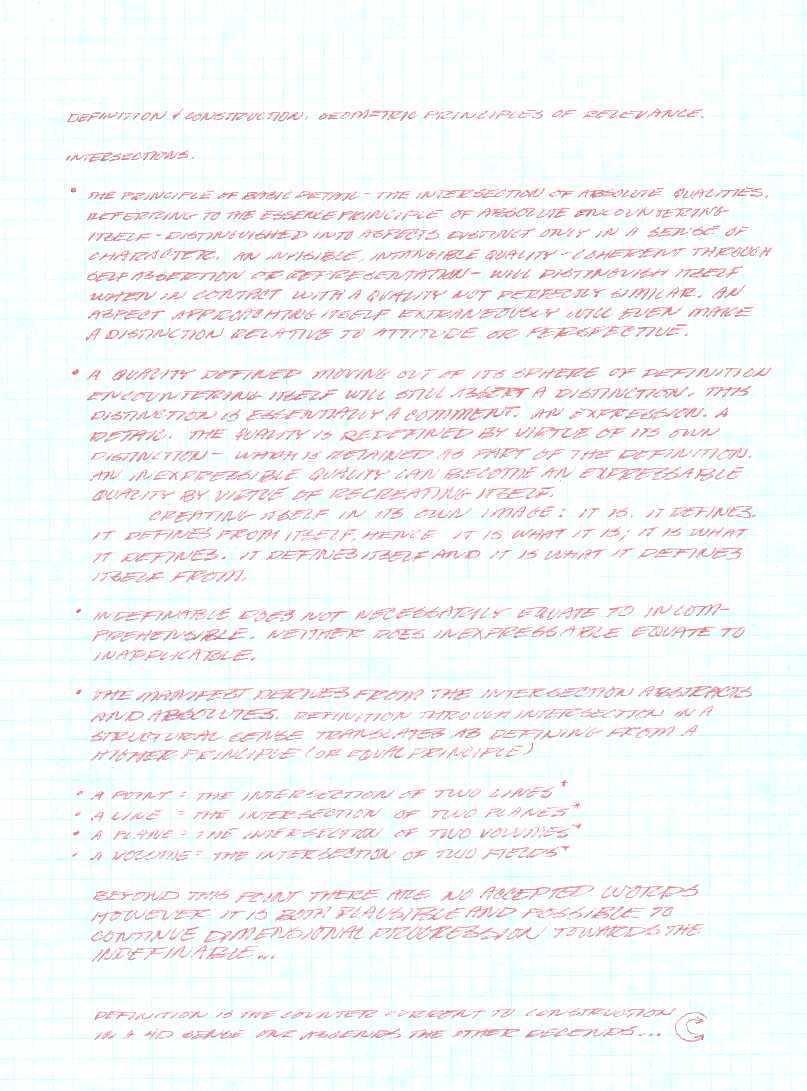 DEFINITION & CONSTRUCTION. GEOMETRIC PRINCIPLES OF RELEVANCE.
INTERSECTIONS.
• THE PRINCIPLE OF BASIC DETAIL - THE INTERSECTION OF ABSOLUTE QUALITIES.
REFERRING TO THE ESSENCE PRINCIPLE OF ABSOLUTE ENCOUNTERING
ITSELF - DISTINGUISHED INTO ASPECTS DISTINCT ONLY IN A SENSE OF
CHARACTER. AN INVISIBLE, INTANGIBLE QUALITY - COHERENT THROUGH
SELF ASSERTION OR REPRESENTATION - WILL DISTINGUISH ITSELF
WHEN IN CONTACT WITH A QUALITY NOT PERFECTLY SIMILAR. AN
ASPECT APPROACHING ITSELF EXTRANEOUSLY WILL EVEN MAKE
A DISTINCTION RELATIVE TO ATTITUDE OR PERSPECTIVE.
• A QUALITY DEFINED MOVING OUT OF ITS SPHERE OF DEFINITION
ENCOUNTERING ITSELF WILL STILL ASSERT A DISTINCTION. THIS
DISTINCTION IS ESSENTIALLY A COMMENT. AN EXPRESSION. A
DETAIL. THE QUALITY IS REDEFINED BY VIRTUE OF ITS OWN
DISTINCTION - WHICH IS RETAINED AS PART OF THE DEFINITION.
AN INEXPRESSIBLE QUALITY CAN BECOME AN EXPRESSABLE
QUALITY BY VIRTUE OF RECREATING ITSELF.
CREATING ITSELF IN ITS OWN IMAGE: IT IS. IT DEFINES.
IT DEFINES FROM ITSELF, HENCE IT IS WHAT IT IS; IT IS WHAT
IT DEFINES. IT DEFINES ITSELF AND IT IS WHAT IT DEFINES
ITSELF FROM.
• INDEFINABLE DOES NOT NECESSARILY EQUATE TO INCOM-
PREHENSIBLE. NEITHER DOES INEXPRESSABLE EQUATE TO
INAPPLICABLE.
• THE MANIFEST DERIVES FROM THE INTERSECTION ABSTRACTS
AND ABSOLUTES. DEFINITION THROUGH INTERSECTION IN A
STRUCTURAL SENSE TRANSLATES AS DEFINING FROM A
HIGHER PRINCIPLE (OR EQUAL PRINCIPLE)
• A POINT = THE INTERSECTION OF TWO LINES*
• A LINE = THE INTERSECTION OF TWO PLANES*
• A PLANE = THE INTERSECTION OF TWO VOLUMES*
• A VOLUME = THE INTERSECTION OF TWO FIELDS*
BEYOND THIS POINT THERE ARE NO ACCEPTED WORDS
HOWEVER IT IS BOTH PLAUSIBLE AND POSSIBLE TO
CONTINUE DIMENSIONAL PROGRESSION TOWARDS THE
INDEFINABLE...
DEFINITION IS THE COUNTER-CURRENT TO CONSTRUCTION
IN A 4D SENSE ONE ASCENDS THE OTHER DECENDS...